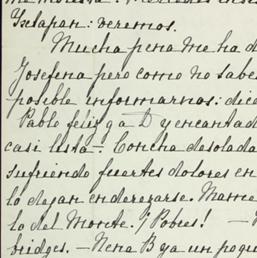 Ixtapan: veremos.
Mucha pena me ha d
Josefina pero como no sabe
posible informarnos: dice
Pablo feliz ga D y encantad
casi lista —. Concha desolada
sufriendo fuertes dolores en
lo dejan enderezarse. Mame
lo del Monte. ¡Pobres! —
bridges. — Nena B ya un poqu